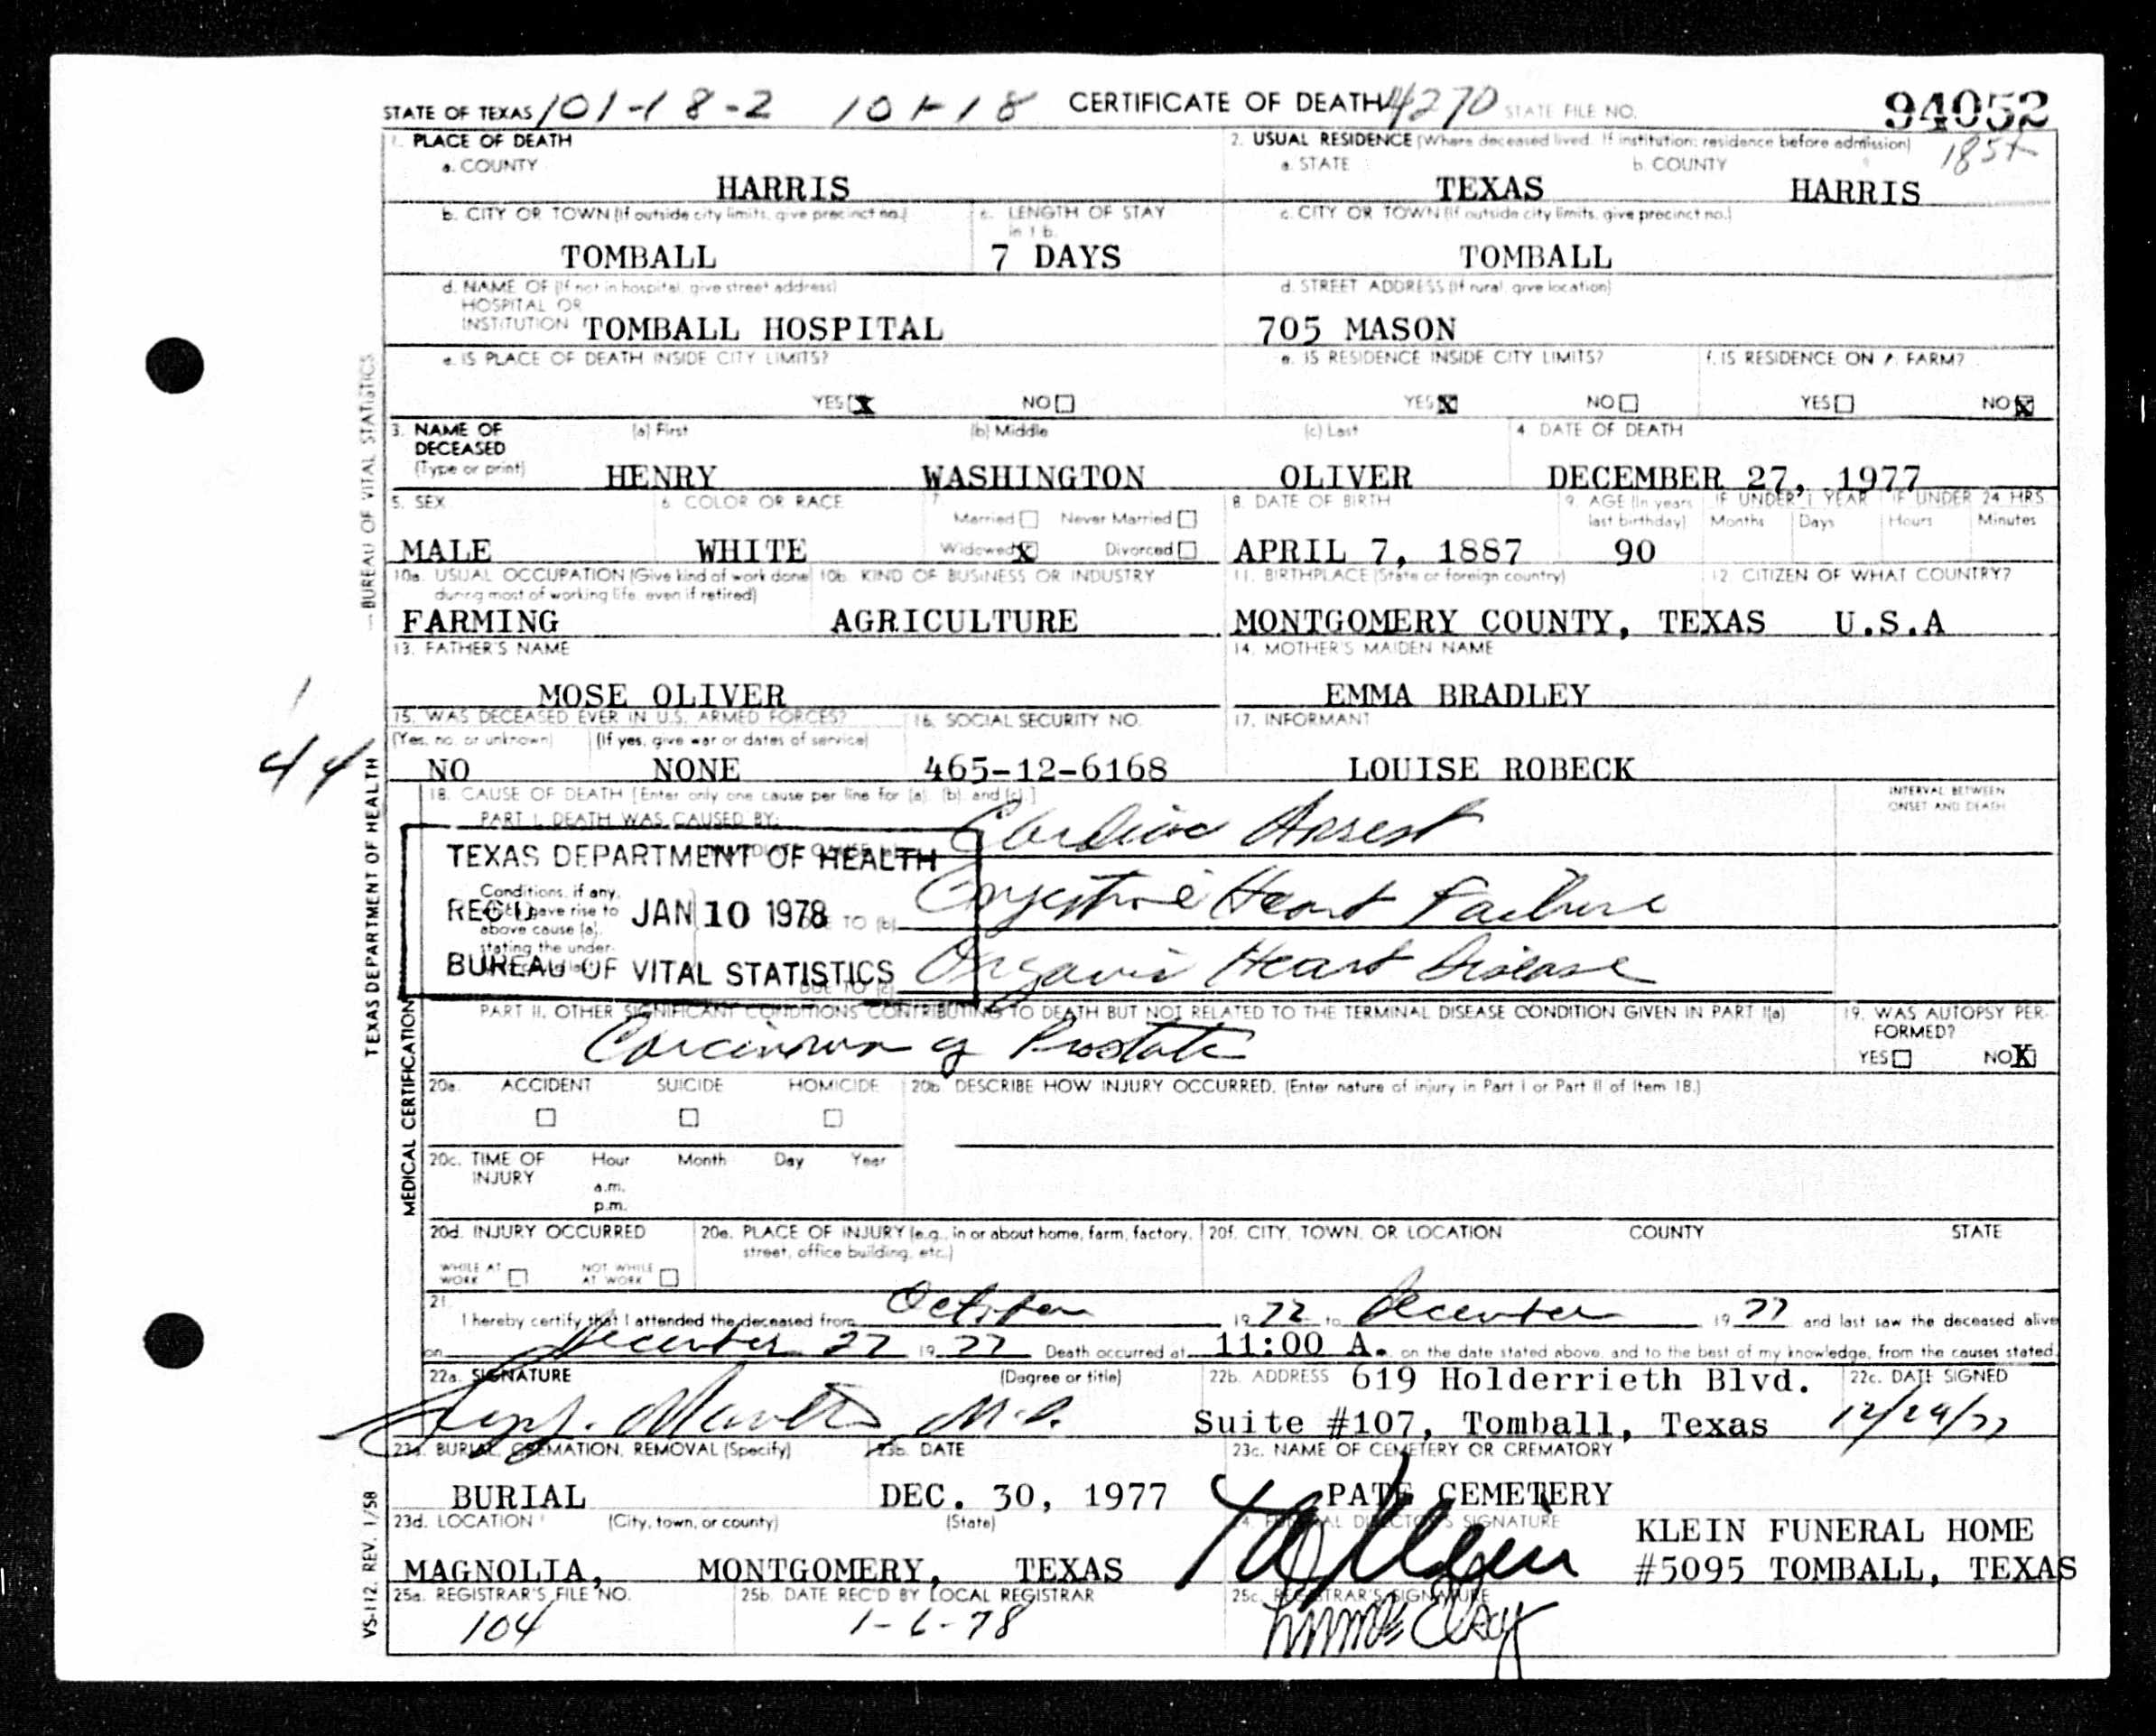 STATE OF TEXAS 101-18-2 101-18 CERTIFICATE OF DEATH 4270 STATE FILE NO. 94052
185+
1. PLACE OF DEATH
a. COUNTY
HARRIS
2. USUAL RESIDENCE (Where deceased lived. If institution: residence before admission)
a. STATE b. COUNTY
TEXAS HARRIS
b. CITY OR TOWN (If outside city limits, give precinct no.) c. LENGTH OF STAY in 1 b.
TOMBALL 7 DAYS
c. CITY OR TOWN (If outside city limits, give precinct no.)
TOMBALL
d. NAME OF (If not in hospital, give street address)
HOSPITAL OR
INSTITUTION TOMBALL HOSPITAL
d. STREET ADDRESS (If rural, give location)
705 MASON
e. IS PLACE OF DEATH INSIDE CITY LIMITS?
YES X NO
e. IS RESIDENCE INSIDE CITY LIMITS?
YES X NO
f. IS RESIDENCE ON A FARM?
YES NO X
3. NAME OF DECEASED (Type or print) (a) First (b) Middle (c) Last
HENRY WASHINGTON OLIVER
4. DATE OF DEATH
DECEMBER 27, 1977
5. SEX
MALE
6. COLOR OR RACE
WHITE
7.
Married Never Married
Widowed X Divorced
8. DATE OF BIRTH
APRIL 7, 1887
9. AGE (In years last birthday)
90
IF UNDER 1 YEAR IF UNDER 24 HRS.
Months Days Hours Minutes
10a. USUAL OCCUPATION (Give kind of work done
during most of working life, even if retired)
FARMING
10b. KIND OF BUSINESS OR INDUSTRY
AGRICULTURE
11. BIRTHPLACE (State or foreign country)
MONTGOMERY COUNTY, TEXAS
12. CITIZEN OF WHAT COUNTRY?
U.S.A
13. FATHER'S NAME
MOSE OLIVER
14. MOTHER'S MAIDEN NAME
EMMA BRADLEY
15. WAS DECEASED EVER IN U.S. ARMED FORCES?
(Yes, no, or unknown) (If yes, give war or dates of service)
NO NONE
16. SOCIAL SECURITY NO.
465-12-6168
17. INFORMANT
LOUISE ROBECK
44
18. CAUSE OF DEATH [Enter only one cause per line for (a), (b), and (c).]
INTERVAL BETWEEN
ONSET AND DEATH
PART I. DEATH WAS CAUSED BY:
Cardiac Arrest
Conditions, if any,
which gave rise to
above cause (a),
stating the under-
DUE TO (b)
Congestive Heart Failure
DUE TO (c)
Organic Heart Disease
TEXAS DEPARTMENT OF HEALTH
REC'D JAN 10 1978
BUREAU OF VITAL STATISTICS
PART II. OTHER SIGNIFICANT CONDITIONS CONTRIBUTING TO DEATH BUT NOT RELATED TO THE TERMINAL DISEASE CONDITION GIVEN IN PART I(a)
Carcinoma of Prostate
19. WAS AUTOPSY PER-
FORMED?
YES NO X
20a. ACCIDENT SUICIDE HOMICIDE
20b. DESCRIBE HOW INJURY OCCURRED. (Enter nature of injury in Part I or Part II of Item 18.)
20c. TIME OF INJURY Hour Month Day Year
a.m.
p.m.
20d. INJURY OCCURRED
WHILE AT WORK NOT WHILE AT WORK
20e. PLACE OF INJURY (e.g., in or about home, farm, factory,
street, office building, etc.)
20f. CITY, TOWN, OR LOCATION COUNTY STATE
21.
I hereby certify that I attended the deceased from October 1977 to December 1977 and last saw the deceased alive
on December 27 1977 Death occurred at 11:00 A. on the date stated above, and to the best of my knowledge, from the causes stated.
22a. SIGNATURE (Degree or title)
M.D.
22b. ADDRESS 619 Holderrieth Blvd.
Suite #107, Tomball, Texas
22c. DATE SIGNED
12/29/77
23a. BURIAL, CREMATION, REMOVAL (Specify)
BURIAL
23b. DATE
DEC. 30, 1977
23c. NAME OF CEMETERY OR CREMATORY
PATE CEMETERY
23d. LOCATION (City, town, or county) (State)
MAGNOLIA, MONTGOMERY, TEXAS
24. FUNERAL DIRECTOR'S SIGNATURE
Klein
KLEIN FUNERAL HOME
#5095 TOMBALL, TEXAS
25a. REGISTRAR'S FILE NO.
104
25b. DATE REC'D BY LOCAL REGISTRAR
1-6-78
25c. REGISTRAR'S SIGNATURE
TEXAS DEPARTMENT OF HEALTH — BUREAU OF VITAL STATISTICS
MEDICAL CERTIFICATION
VS-112, REV. 1/58